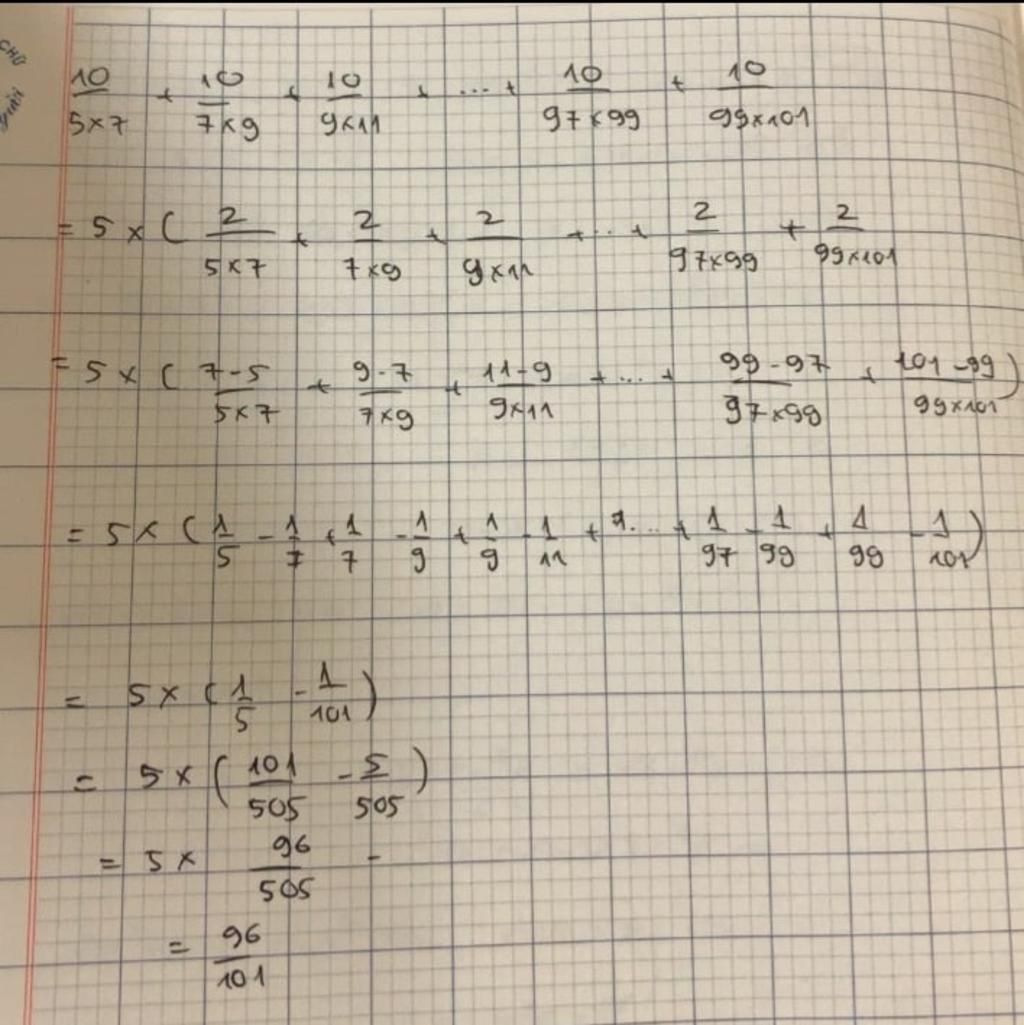 chữ
10/5×7 + 10/7×9 + 10/9×11 + ... + 10/97×99 + 10/99×101
= 5 × ( 2/5×7 + 2/7×9 + 2/9×11 + ... + 2/97×99 + 2/99×101
= 5 × ( 7-5/5×7 + 9-7/7×9 + 11-9/9×11 + ... + 99-97/97×99 + 101-99/99×101 )
= 5 × ( 1/5 - 1/7 + 1/7 - 1/9 + 1/9 - 1/11 + ... + 1/97 - 1/99 + 1/99 - 1/101 )
= 5 × ( 1/5 - 1/101 )
= 5 × ( 101/505 - 5/505 )
= 5 × 96/505 -
= 96/101